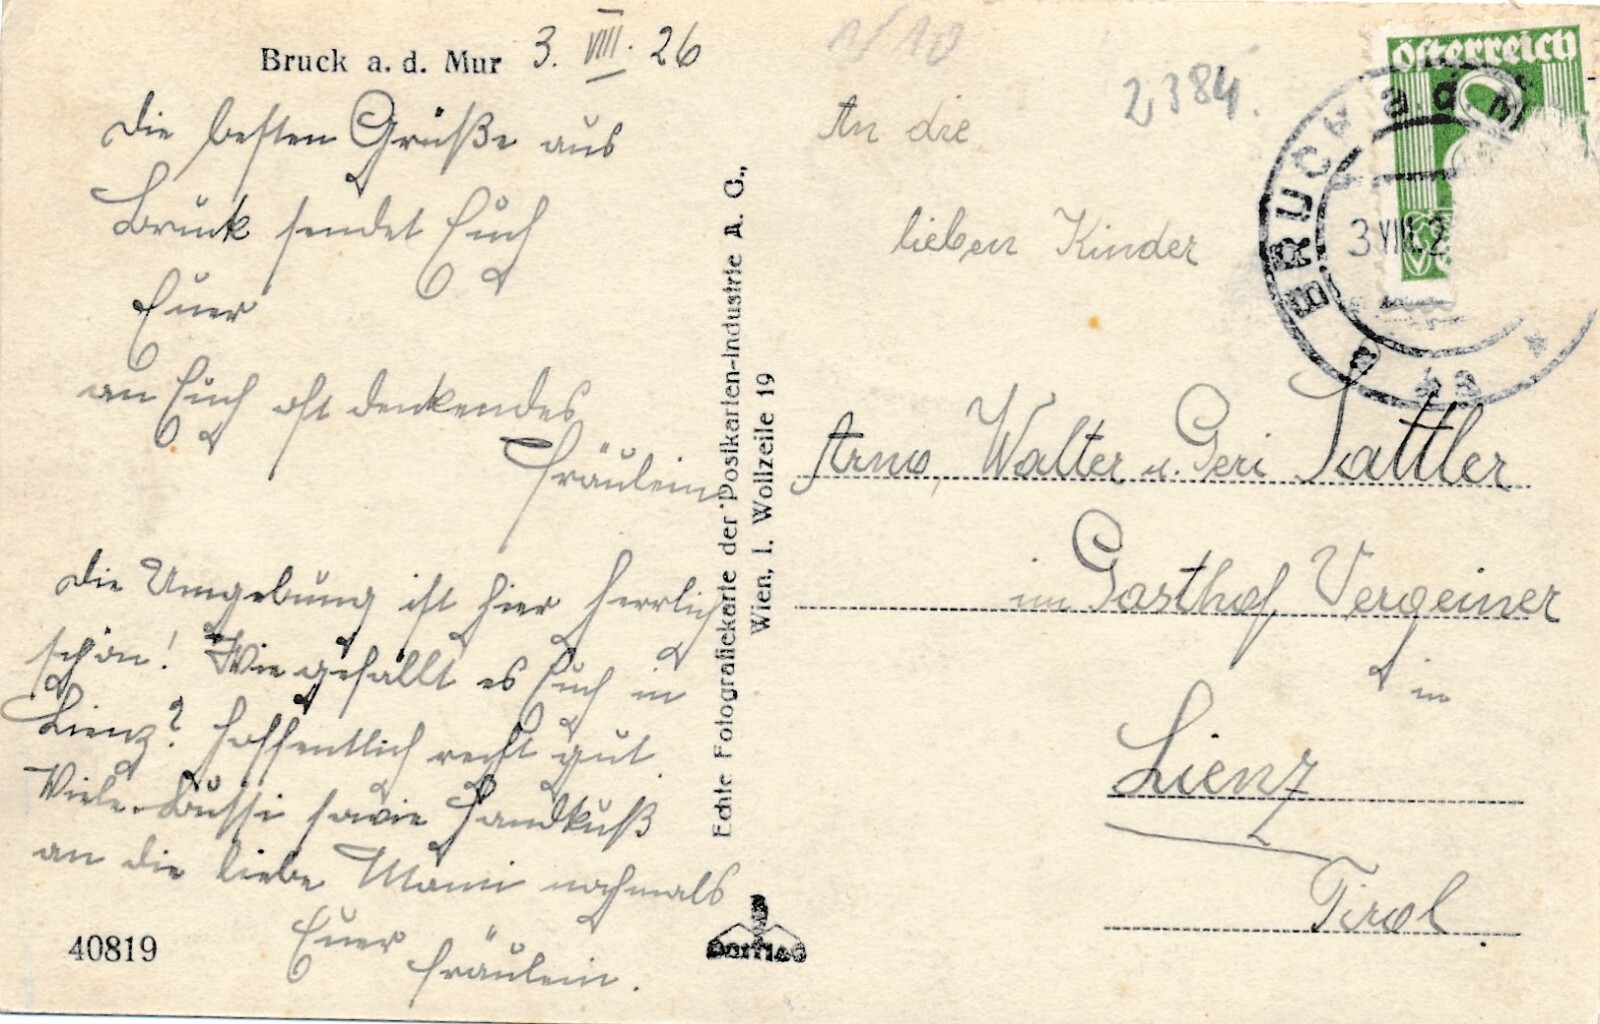 Bruck a. d. Mur 3. VIII. 26
Die besten Grüße aus
Bruck sendet Euch
Euer
an Euch oft denkendes
Fräulein
Die Umgebung ist hier herrlich
schön! Wie gefällt es Euch in
Lienz? Hoffentlich recht gut.
Viele Bussi sowie Handkuß
an die liebe Mami nochmals
Euer Fräulein.
40819
Echte Fotografiekarte der Postkarten-Industrie A. G.,
Wien, I. Wollzeile 19
2384.
An die
lieben Kinder
Arno, Walter u. Geri Sattler
im Gasthof Vergeiner
in
Lienz
Tirol.
Österreich
BRUCK a. d. M
3 VIII. 2